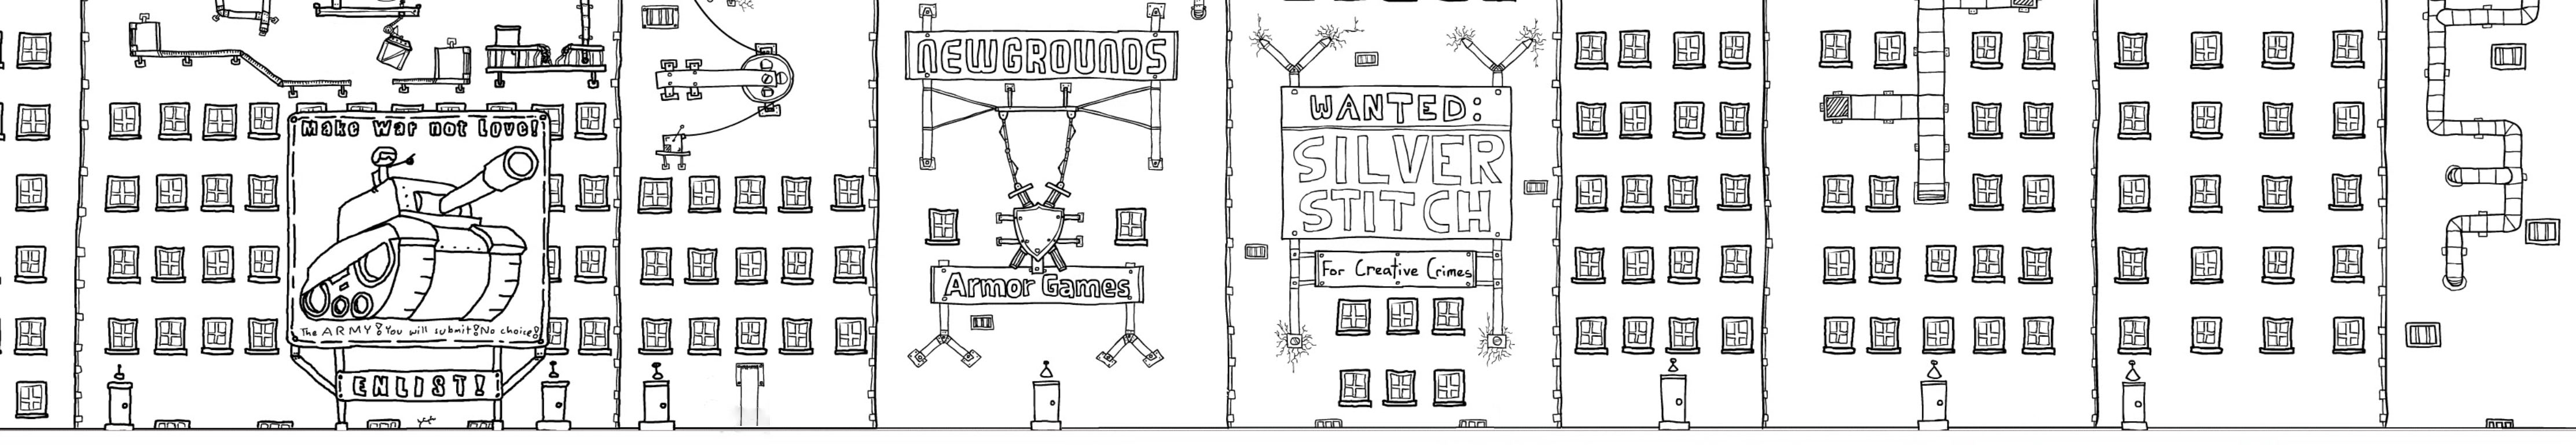 Make War not Love!
The ARMY! You will submit! No choice!
ENLIST!
NEWGROUNDS
Armor Games
WANTED:
SILVER
STITCH
For Creative Crimes